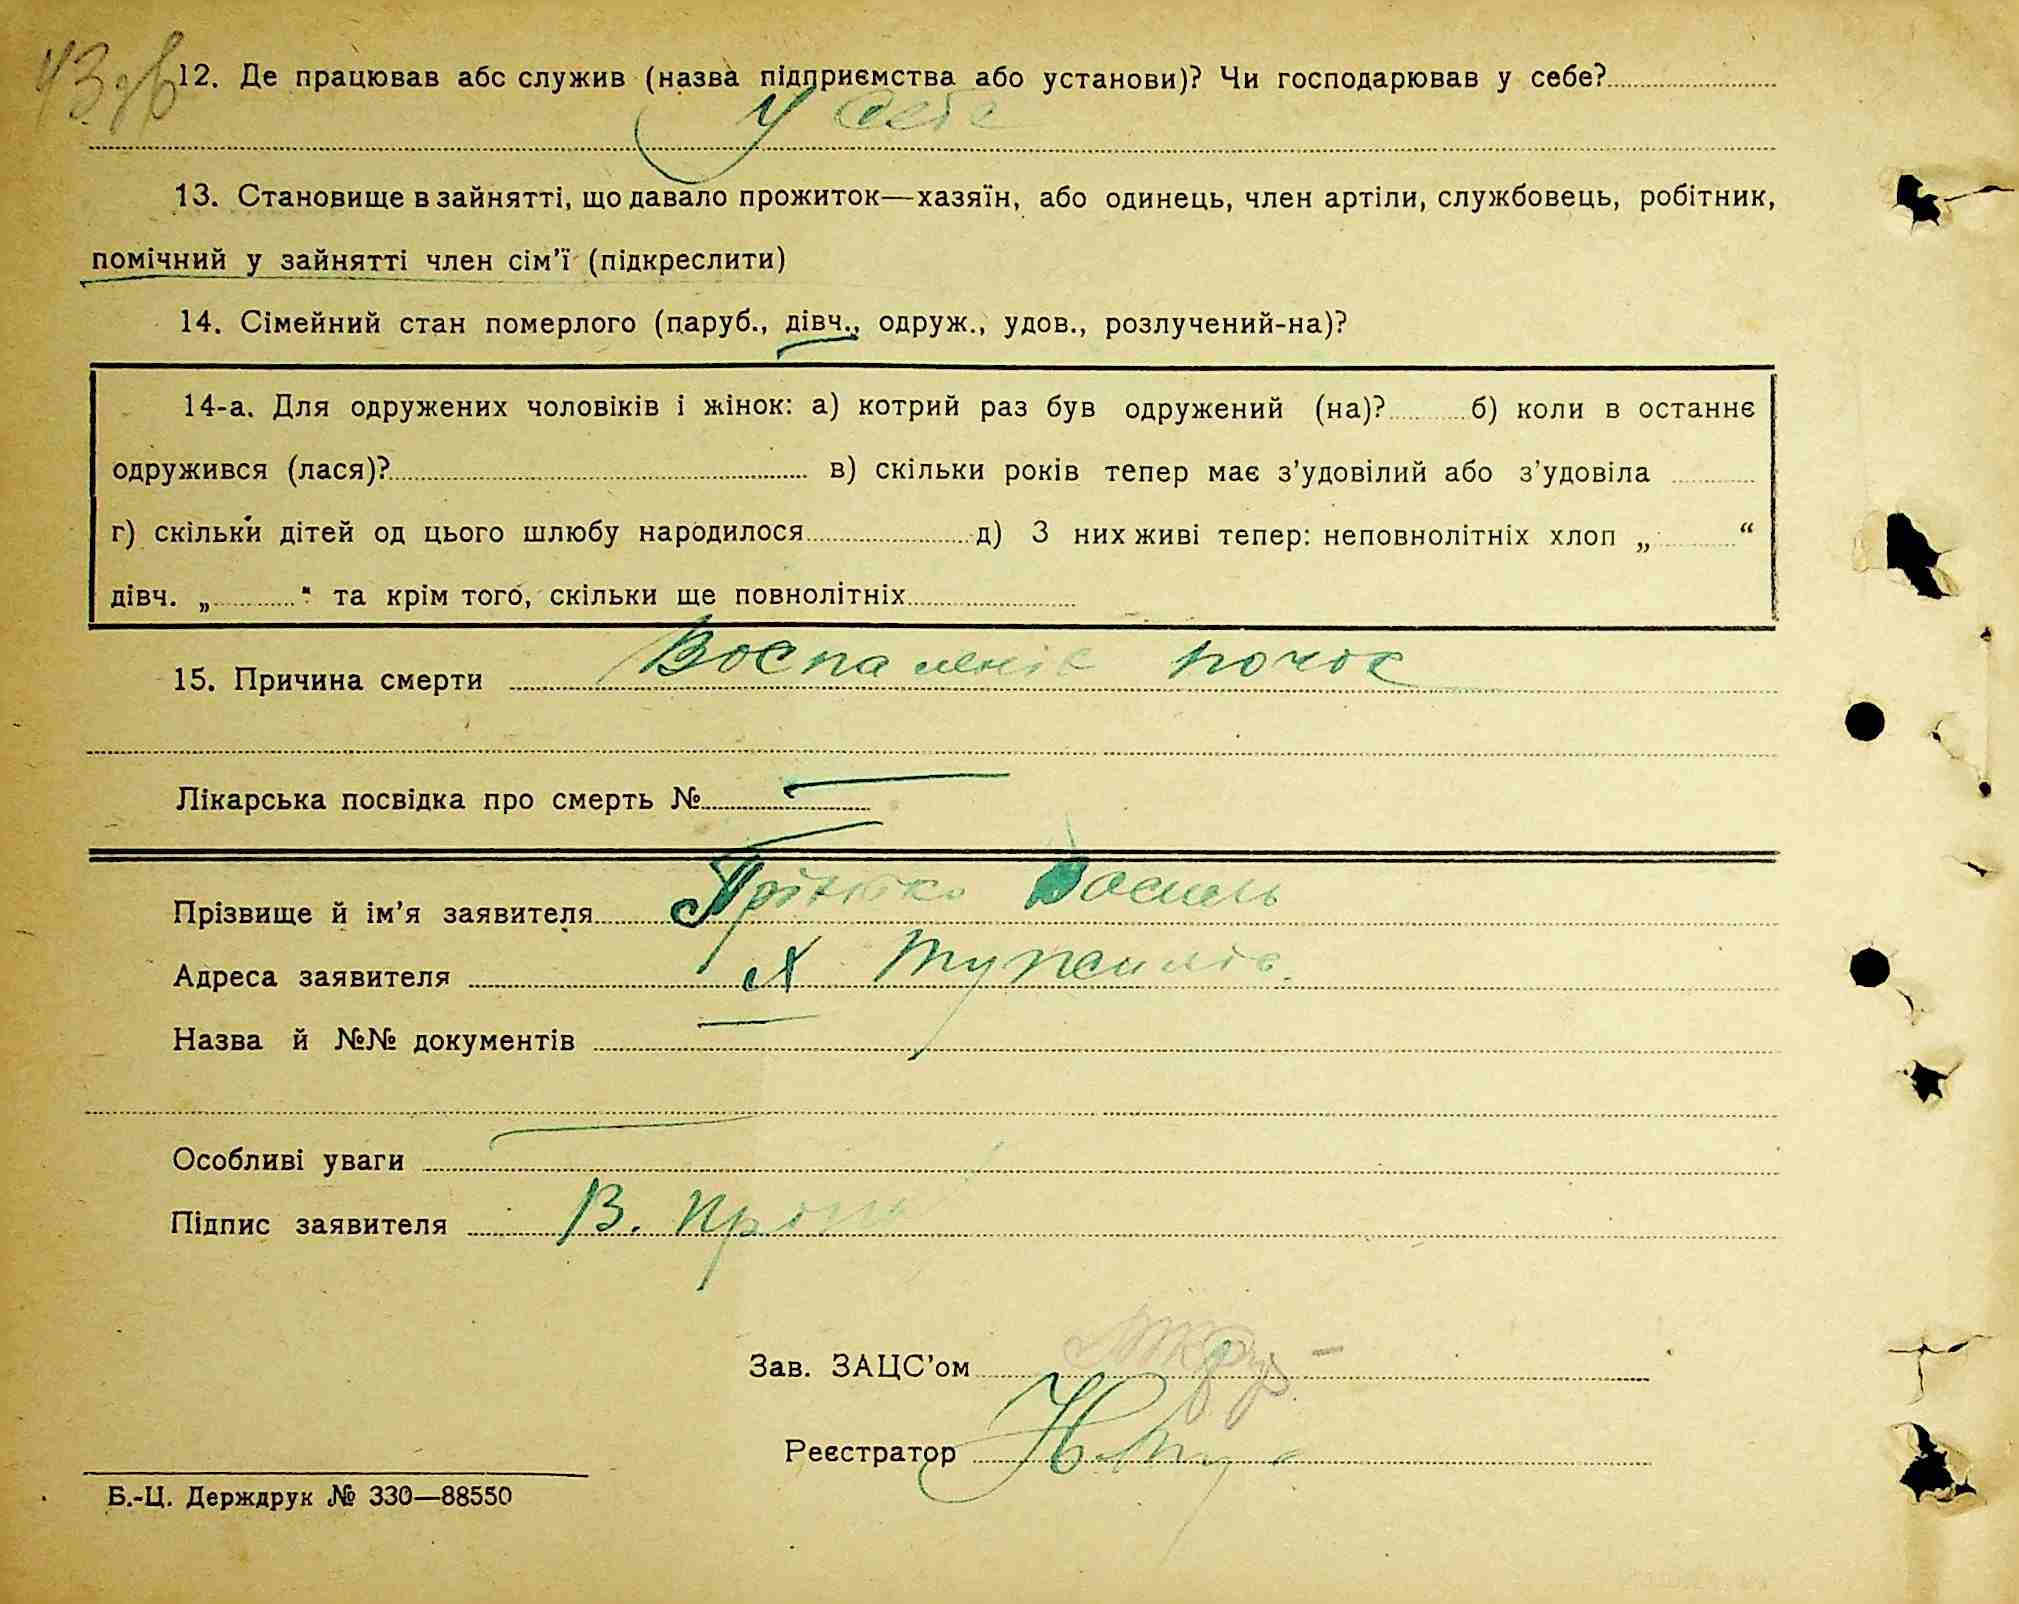 43 зв
12. Де працював або служив (назва підприємства або установи)? Чи господарював у себе?
У себе
13. Становище в зайнятті, що давало прожиток—хазяїн, або одинець, член артіли, службовець, робітник,
помічний у зайнятті член сім’ї (підкреслити)
14. Сімейний стан померлого (паруб., дівч., одруж., удов., розлучений-на)?
14-а. Для одружених чоловіків і жінок: а) котрий раз був одружений (на)? б) коли в останнє
одружився (лася)? в) скільки років тепер має з’удовілий або з’удовіла
г) скільки дітей од цього шлюбу народилося д) З них живі тепер: неповнолітніх хлоп „ “
дівч. „ “ та крім того, скільки ще повнолітніх
15. Причина смерти Воспаленіє почок
Лікарська посвідка про смерть № —
Прізвище й ім’я заявителя Василь
Адреса заявителя х
Назва й №№ документів —
Особливі уваги —
Підпис заявителя В.
Зав. ЗАЦС’ом
Реєстратор
Б.-Ц. Держдрук № 330—88550